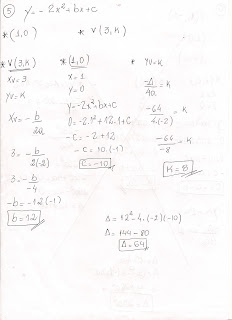 ⑤ y = -2x²+bx+c
* (1,0) * V(3,K)
* V(3,K)
Xv = 3
yv = K
Xv = -b/2a
3 = -b/2(-2)
3 = -b/-4
-b = -12 (-1)
b = 12
(1,0)
x = 1
y = 0
y = -2x²+bx+c
0 = -2.1²+12.1+C
-c = -2+12
-c = 10.(-1)
C = -10
* yv = K
-Δ/4a = K
-64/4(-2) = K
-64/-8 = K
K = 8
Δ = 12²-4.(-2)(-10)
Δ = 144-80
Δ = 64